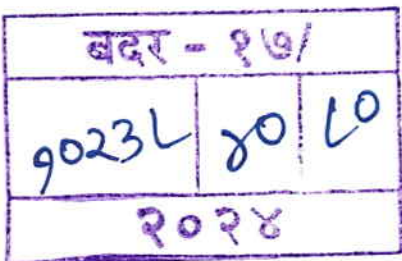 बदर - १७/
१०२३८ ४० ८०
२०२४